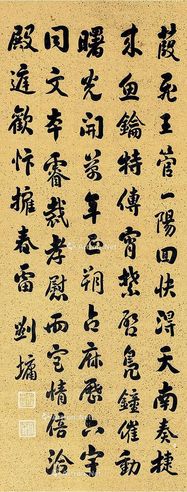 葭飛玉管一陽回快得天南奏捷
來魚鑰特傳宵禁啓鳧鐘催動
曙光開萬年正朔占庥歷六宇
同文本睿裁孝慰兩宮情倍洽
殿庭歡忭擁春雷 劉墉